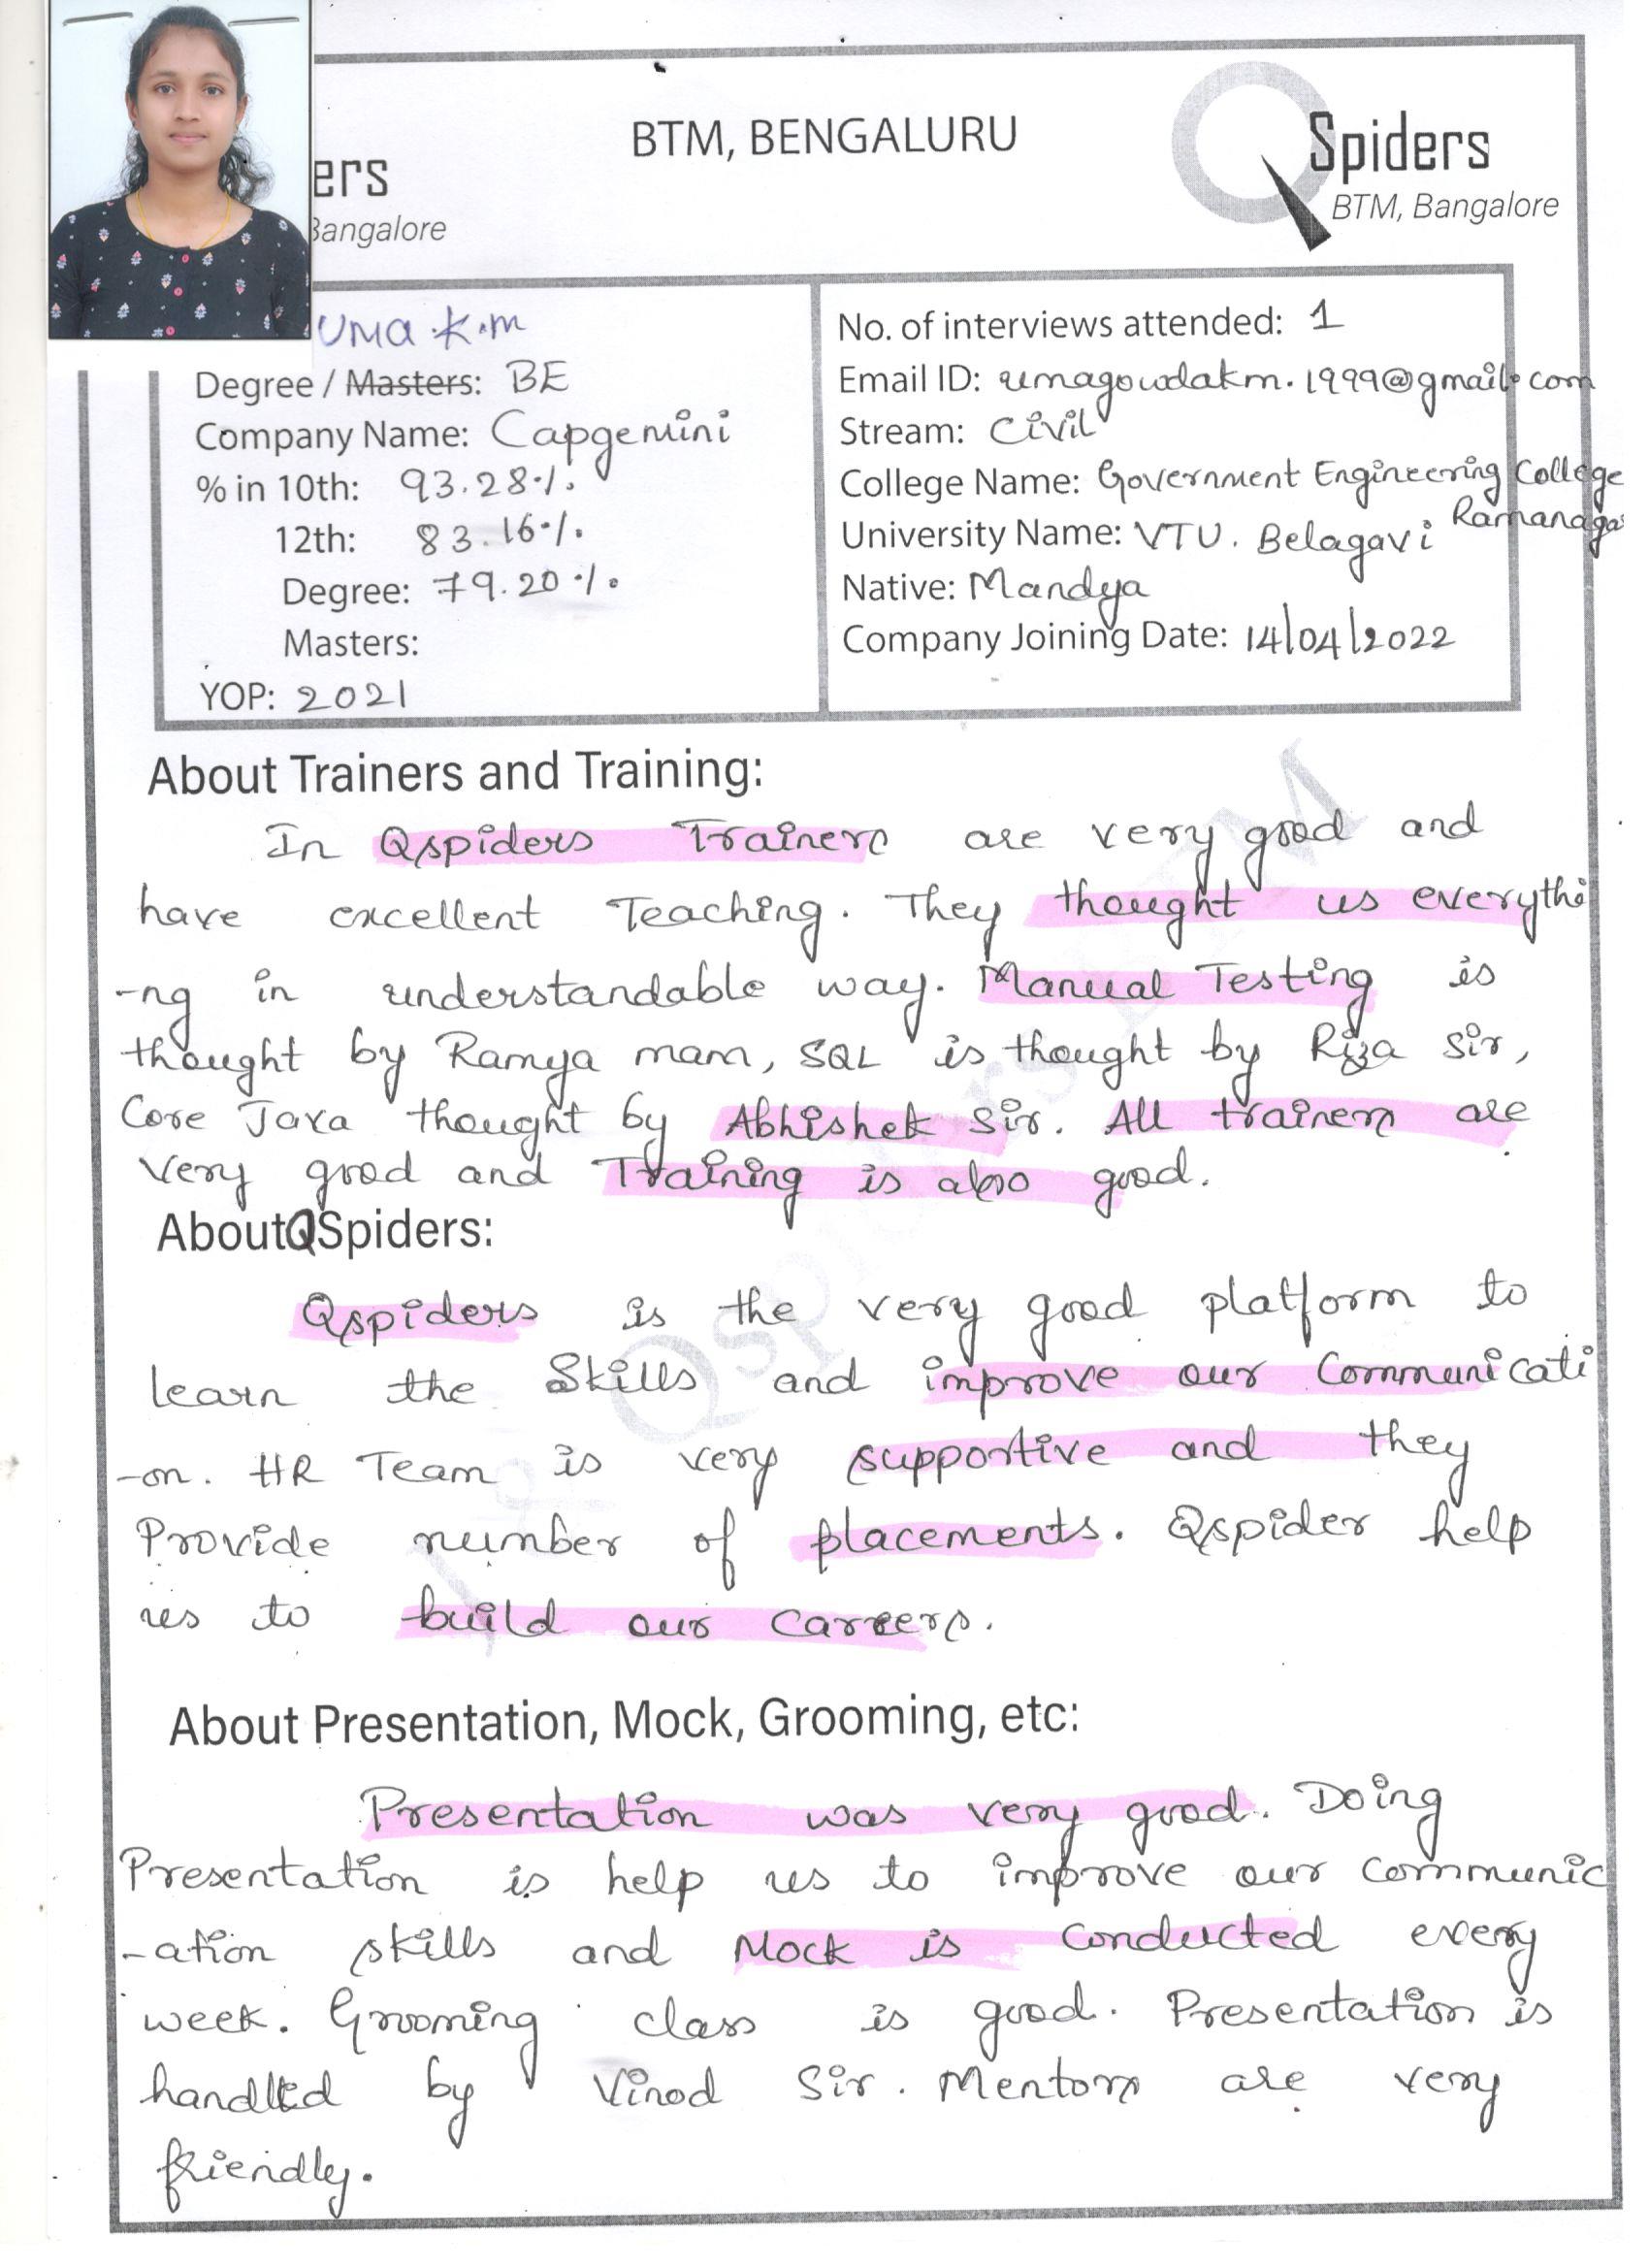 BTM, BENGALURU
Spiders
BTM, Bangalore
ers
Bangalore
UMA.K.M
Degree / Masters: BE
Company Name: Capgemini
% in 10th: 93.28%.
12th: 83.16%.
Degree: 79.20%.
Masters:
YOP: 2021
No. of interviews attended: 1
Email ID: umagowdakm.1999@gmail.com
Stream: Civil
College Name: Government Engineering College
Ramanaga
University Name: VTU. Belagavi
Native: Mandya
Company Joining Date: 14/04/2022
About Trainers and Training:
In Qspiders Trainers are very good and
have excellent Teaching. They thought us everythi
-ng in understandable way. Manual Testing is
thought by Ramya mam, SQL is thought by Riza Sir,
Core Java thought by Abhishek Sir. All trainers are
Very good and Training is also good.
About QSpiders:
Qspiders is the very good platform to
learn the Skills and improve our Communicati
-on. HR Team is very supportive and they
Provide number of placements. Qspider help
us to build our careers.
About Presentation, Mock, Grooming, etc:
Presentation was very good. Doing
Presentation is help us to improve our communic
-ation skills and Mock is conducted every
week. Grooming class is good. Presentation is
handled by Vinod Sir. Mentors are very
friendly.